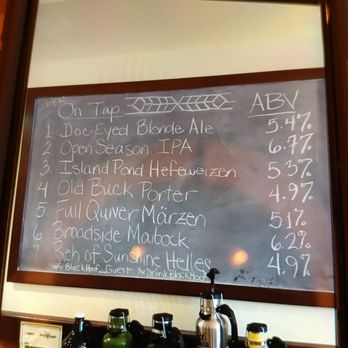 On Tap ABV
1. Doe-Eyed Blonde Ale 5.4%
2. Open Season IPA 6.7%
3. Island Pond Hefeweizen 5.3%
4. Old Buck Porter 4.9%
5. Full Quiver Märzen 5.1%
6. Broadside Maibock 6.2%
7. Reh of Sunshine Helles 4.9%
BlackHoof_Guest DrinkBlackHoof